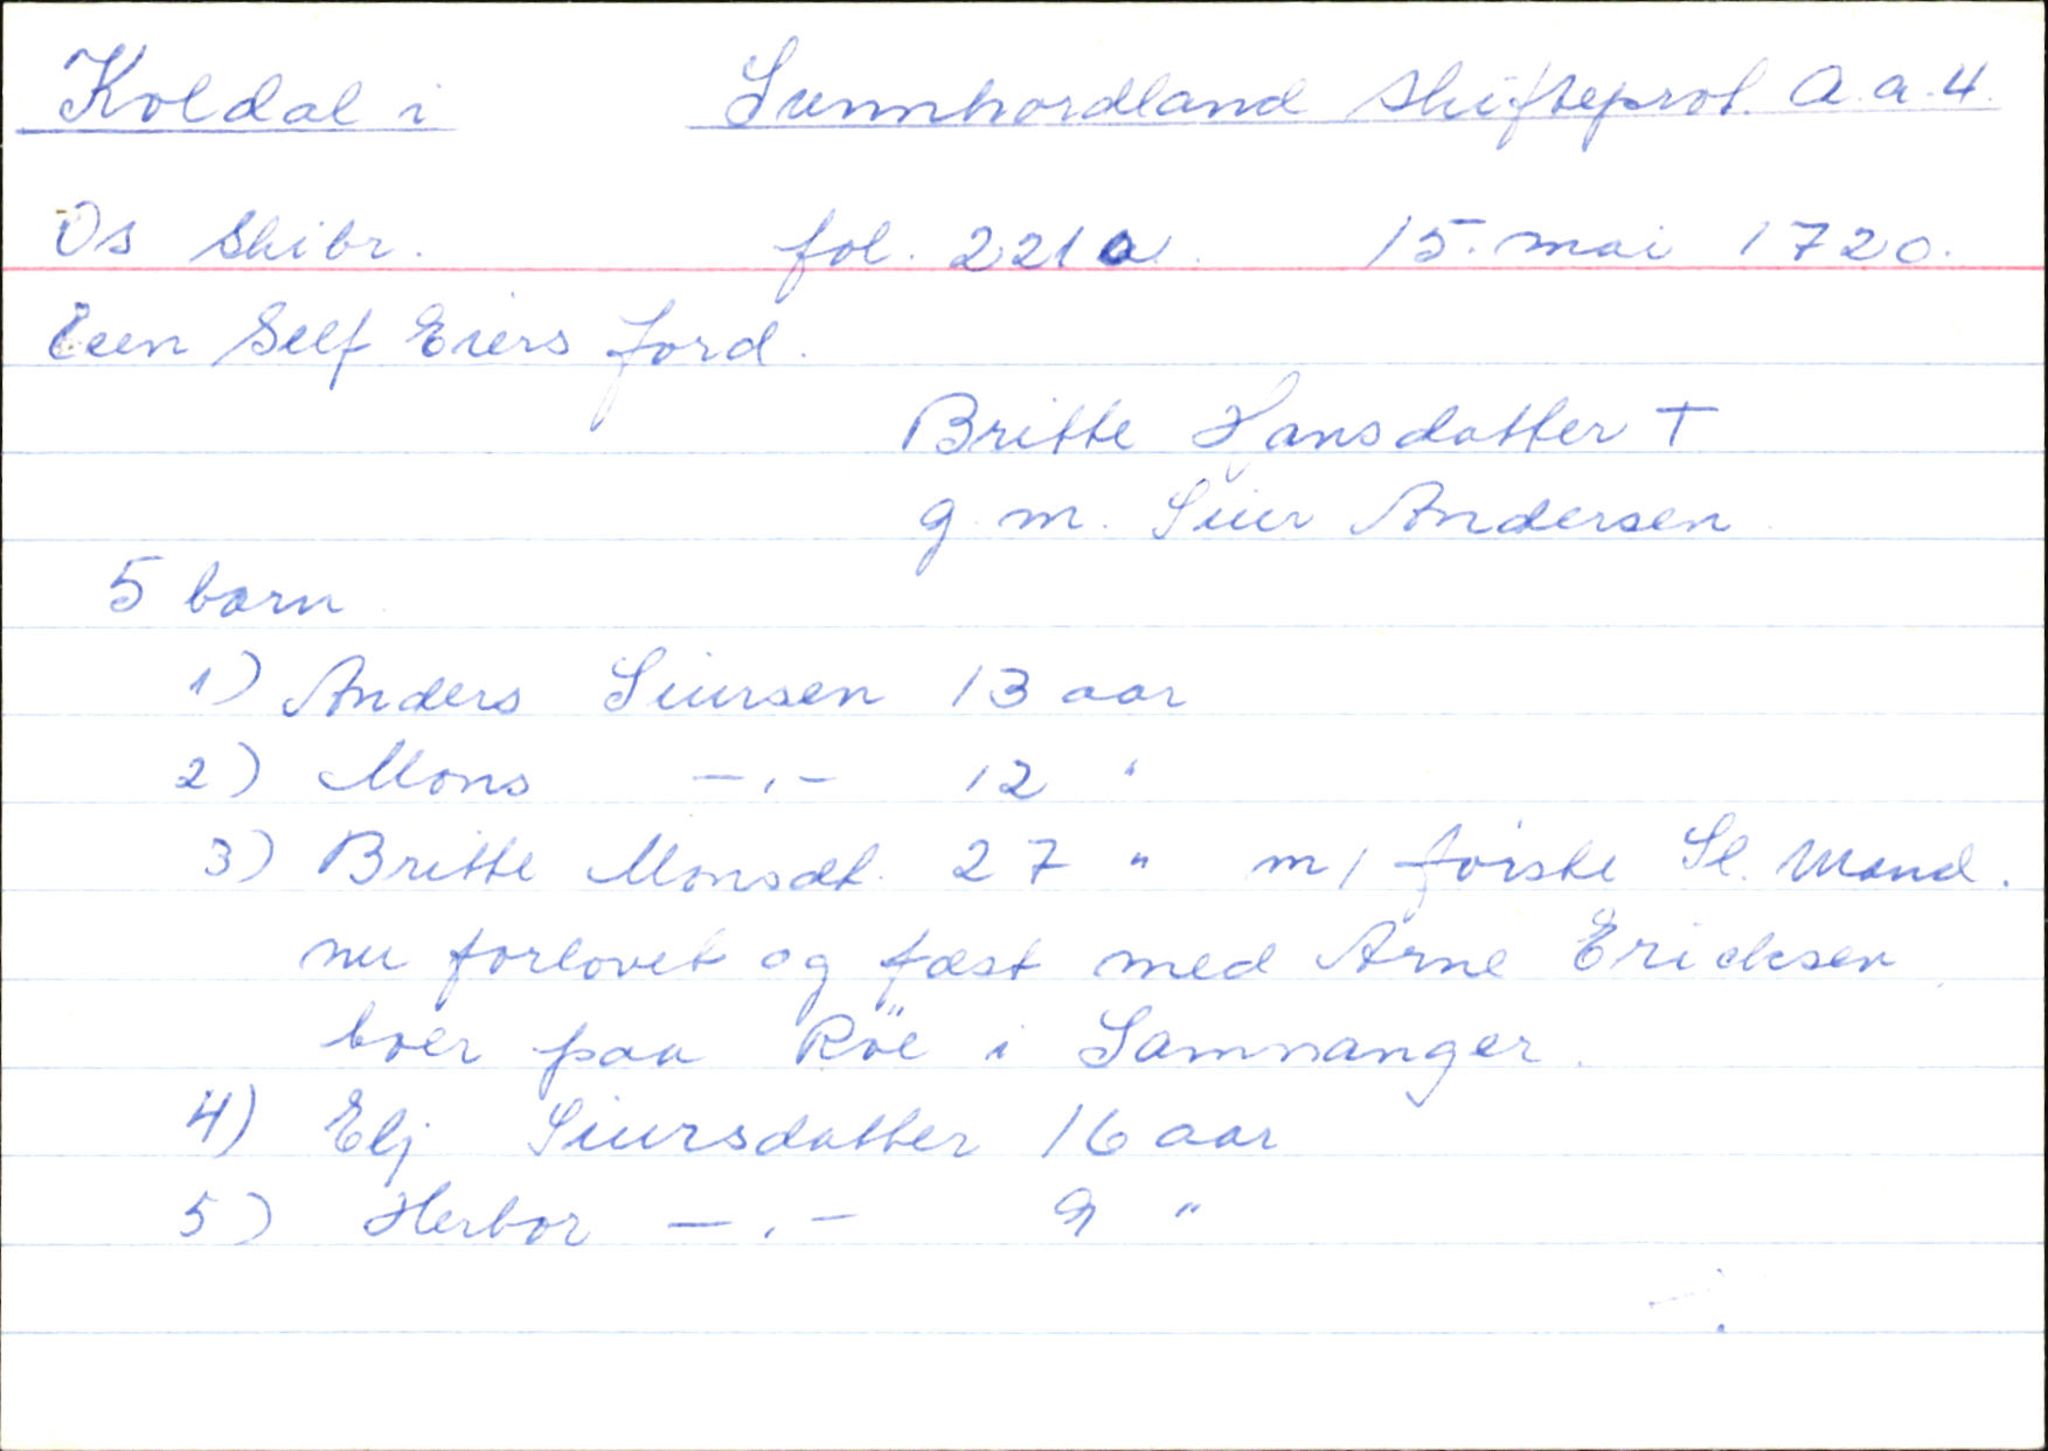 Koldal i Sunnhordland skifteprot. A.a.4.
Os skibr. fol. 221a. 15. mai 1720.
Een Self Eiers Jord.
Britte Hansdatter †
g. m. Siur Andersen.
5 barn
1) Anders Siursen 13 aar
2) Mons —"— 12 "
3) Britte Monsdt. 27 " m/ første Sl. Mand.
nu forlovet og fæst med Arne Ericksen,
boer paa Röe i Samnanger.
4) Elj Siursdatter 16 aar
5) Herbor —"— 9 "